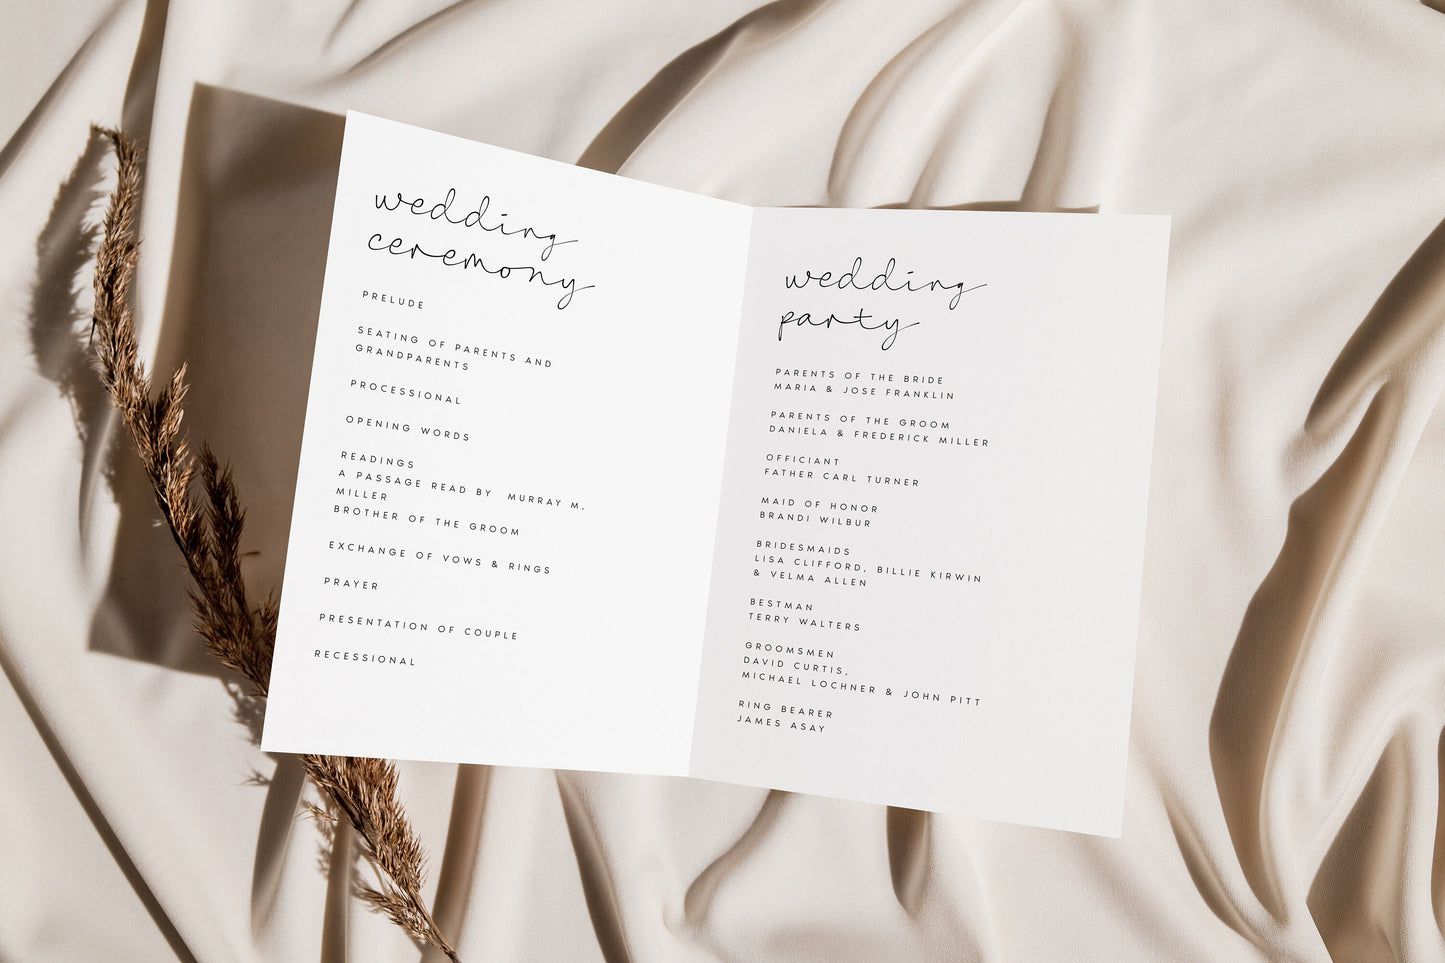 wedding
ceremony
PRELUDE
SEATING OF PARENTS AND
GRANDPARENTS
PROCESSIONAL
OPENING WORDS
READINGS
A PASSAGE READ BY  MURRAY M.
MILLER
BROTHER OF THE GROOM
EXCHANGE OF VOWS & RINGS
PRAYER
PRESENTATION OF COUPLE
RECESSIONAL
wedding
party
PARENTS OF THE BRIDE
MARIA & JOSE FRANKLIN
PARENTS OF THE GROOM
DANIELA & FREDERICK MILLER
OFFICIANT
FATHER CARL TURNER
MAID OF HONOR
BRANDI WILBUR
BRIDESMAIDS
LISA CLIFFORD, BILLIE KIRWIN
& VELMA ALLEN
BESTMAN
TERRY WALTERS
GROOMSMEN
DAVID CURTIS,
MICHAEL LOCHNER & JOHN PITT
RING BEARER
JAMES ASAY